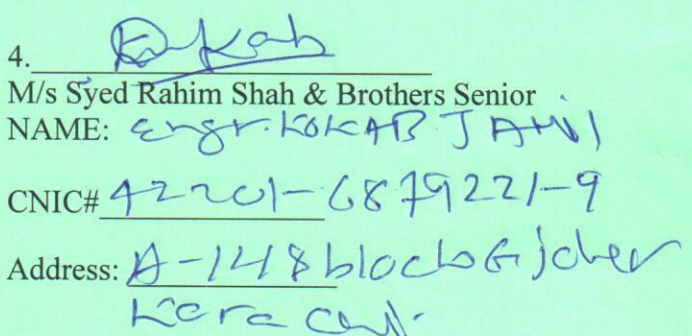 4. Kokab
M/s Syed Rahim Shah & Brothers Senior
NAME: Engr. KOKAB JAMIL
CNIC# 42201-6879221-9
Address: A-148 block G joher
Karachi.